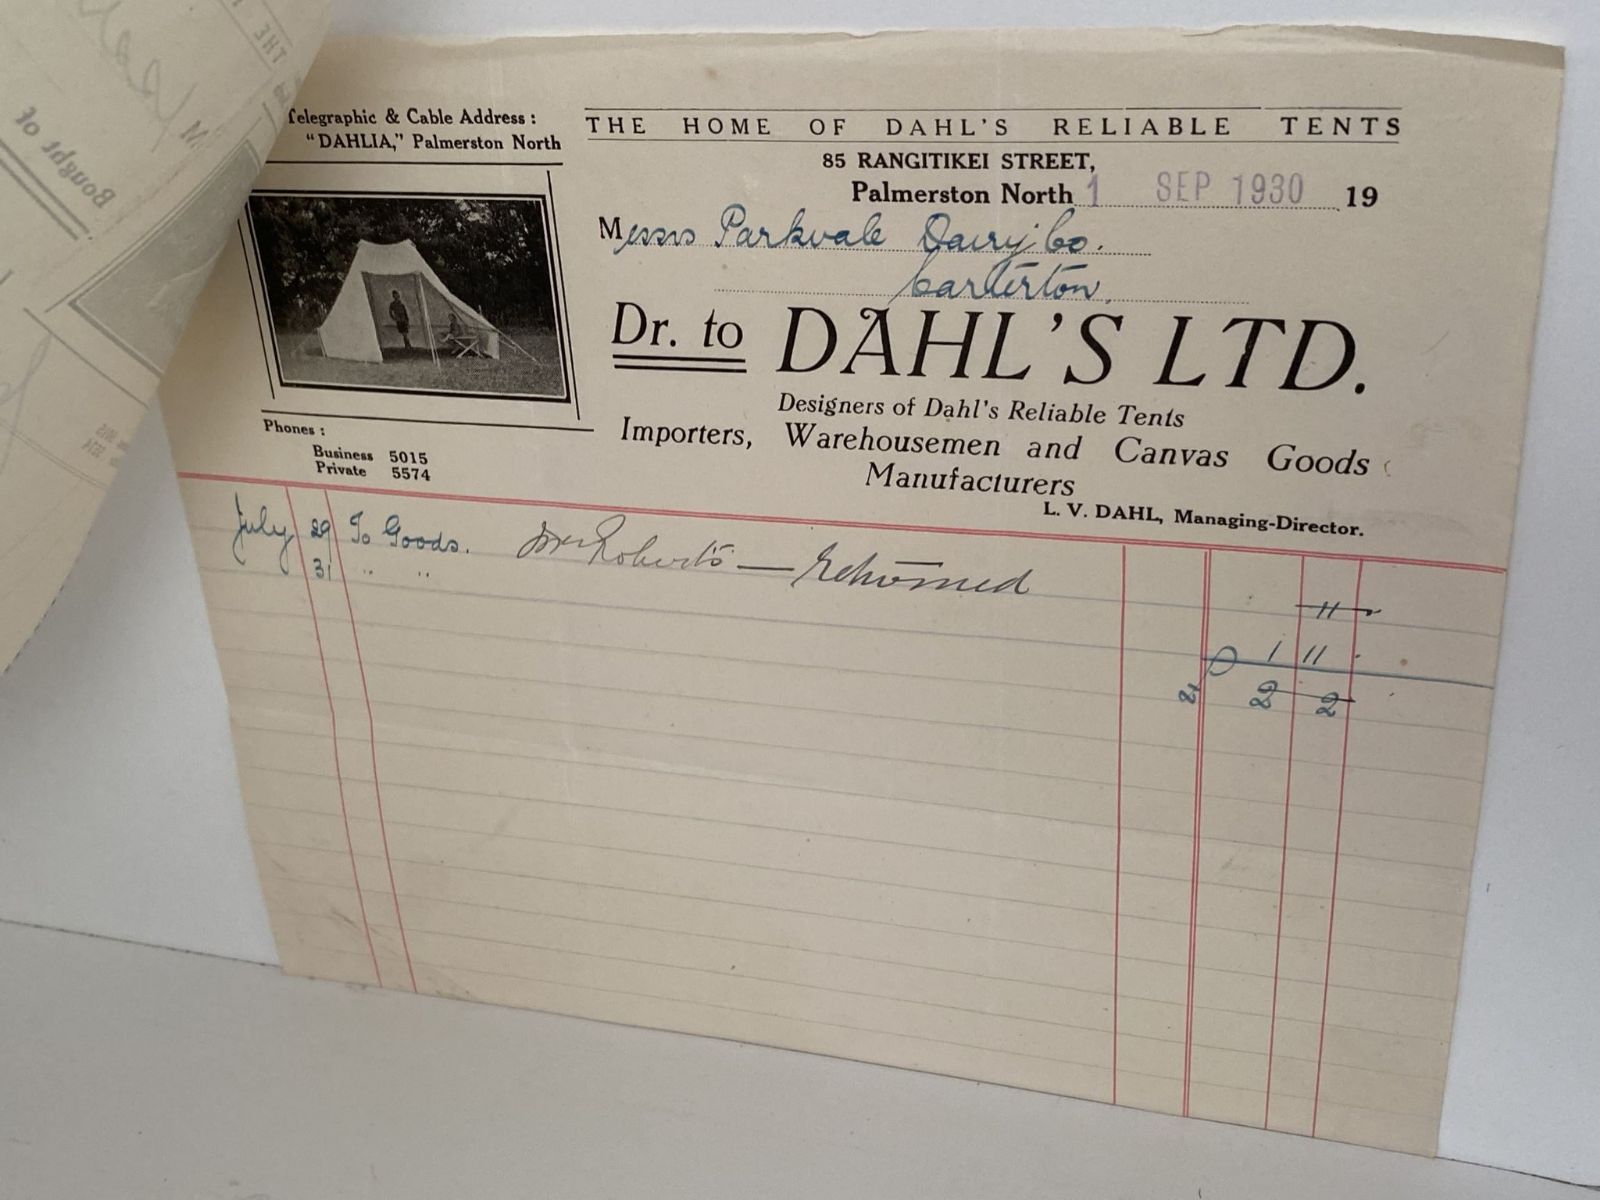 Telegraphic & Cable Address :
"DAHLIA," Palmerston North
THE HOME OF DAHL'S RELIABLE TENTS
85 RANGITIKEI STREET,
Palmerston North 1 SEP 1930 19
Messrs Parkvale Dairy Co.
Carterton.
Dr. to DAHL'S LTD.
Designers of Dahl's Reliable Tents
Importers, Warehousemen and Canvas Goods
Manufacturers
L. V. DAHL, Managing-Director.
Phones :
Business 5015
Private 5574
July 29 To Goods. Roberts — Returned
31 " "
11
1 11
2 2
Bought of
THE
M